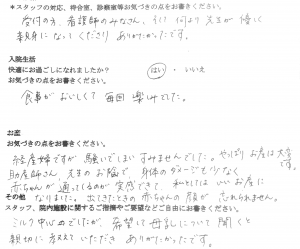 *スタッフの対応、待合室、診察室等お気づきの点をお書きください。
受付の方、看護師のみなさん、そして何より先生が優しく
親身になってくださり ありがたかったです。
入院生活
快適にお過ごしになれましたか? はい ・ いいえ
お気づきの点をお書きください。
食事がおいしくて 毎回 楽しみでした。
お産
お気づきの点をお書きください。
経産婦ですが 騒いでしまい すみませんでした。やっぱり お産は大変
助産師さん、先生のお陰で、身体のダメージも少なく
赤ちゃんが 通ってくるのが 実感できて 私としては いい お産に
その他 なりました。出てきたときの 赤ちゃんの顔が 忘れられません。
スタッフ、院内施設に関するご指摘やご要望などご自由にお書きください。
ミルク中心のでしたが、希望して母乳について聞くと
親切に 教えて いただき ありがたかったです。